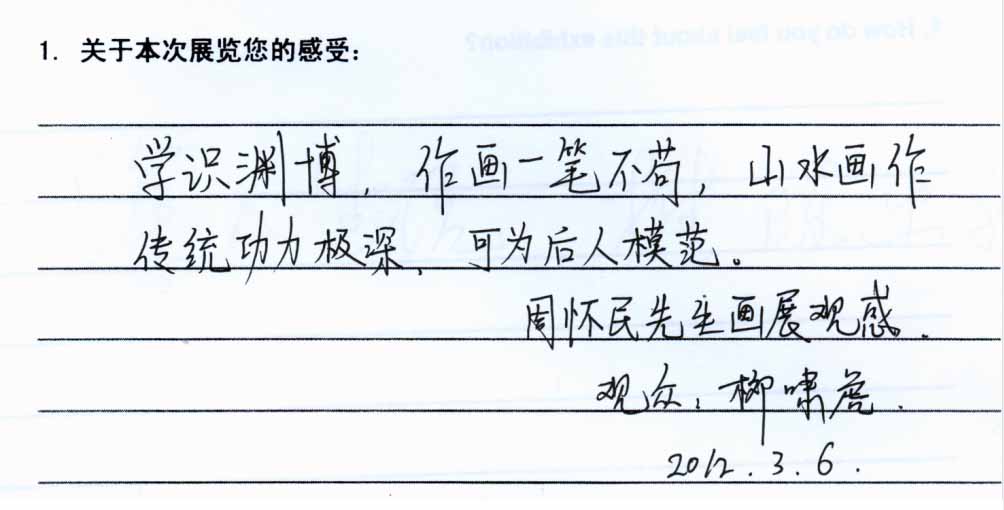 1. 关于本次展览您的感受:
学识渊博 作画一笔不苟, 山水画作
传统功力极深, 可为后人模范。
周怀民先生画展观感.
观众: 柳啸
2012.3.6.